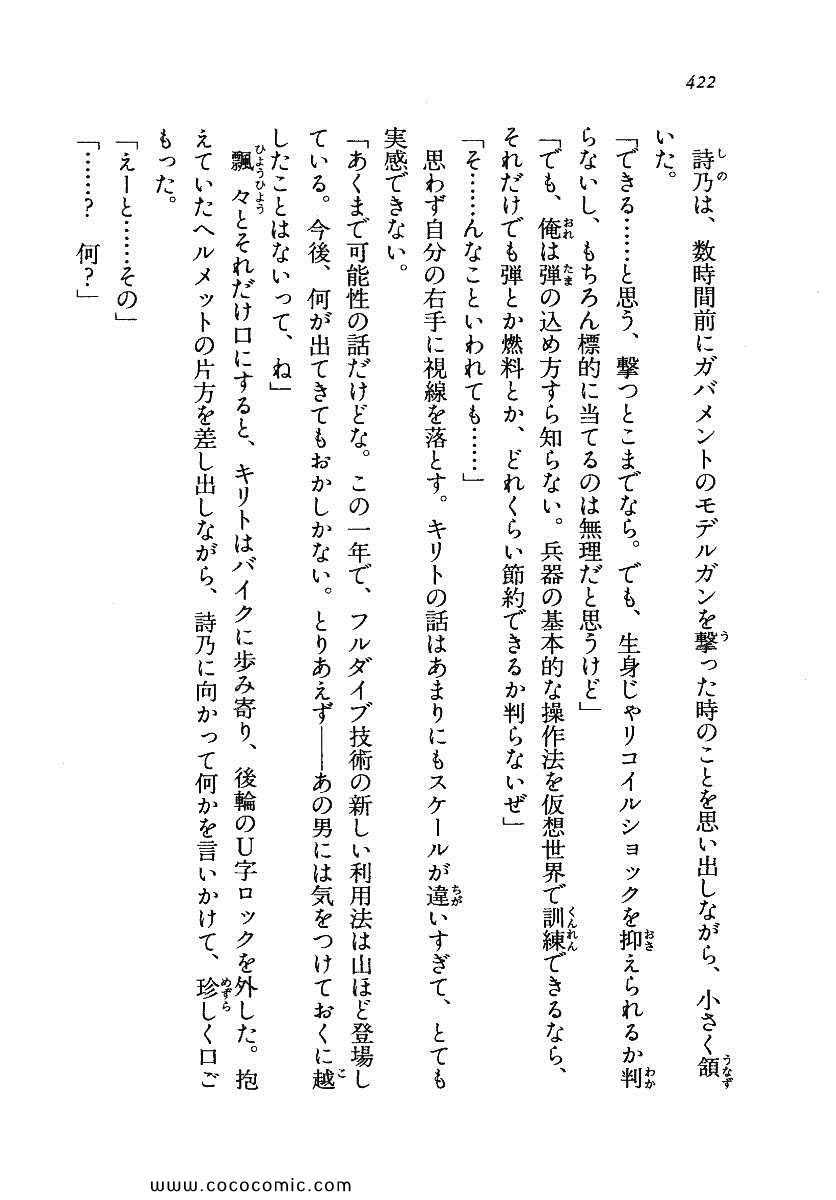 422
詩乃は、数時間前にガバメントのモデルガンを撃った時のことを思い出しながら、小さく頷
いた。
「できる……と思う、撃つとこまでなら。でも、生身じゃリコイルショックを抑えられるか判
らないし、もちろん標的に当てるのは無理だと思うけど」
「でも、俺は弾の込め方すら知らない。兵器の基本的な操作法を仮想世界で訓練できるなら、
それだけでも弾とか燃料とか、どれくらい節約できるか判らないぜ」
「そ……んなこといわれても……」
思わず自分の右手に視線を落とす。キリトの話はあまりにもスケールが違いすぎて、とても
実感できない。
「あくまで可能性の話だけどな。この一年で、フルダイブ技術の新しい利用法は山ほど登場し
ている。今後、何が出てきてもおかしかない。とりあえず――あの男には気をつけておくに越
したことはないって、ね」
飄々とそれだけ口にすると、キリトはバイクに歩み寄り、後輪のU字ロックを外した。抱
えていたヘルメットの片方を差し出しながら、詩乃に向かって何かを言いかけて、珍しく口ご
もった。
「えーと……その」
「……？　何？」
www.cococomic.com